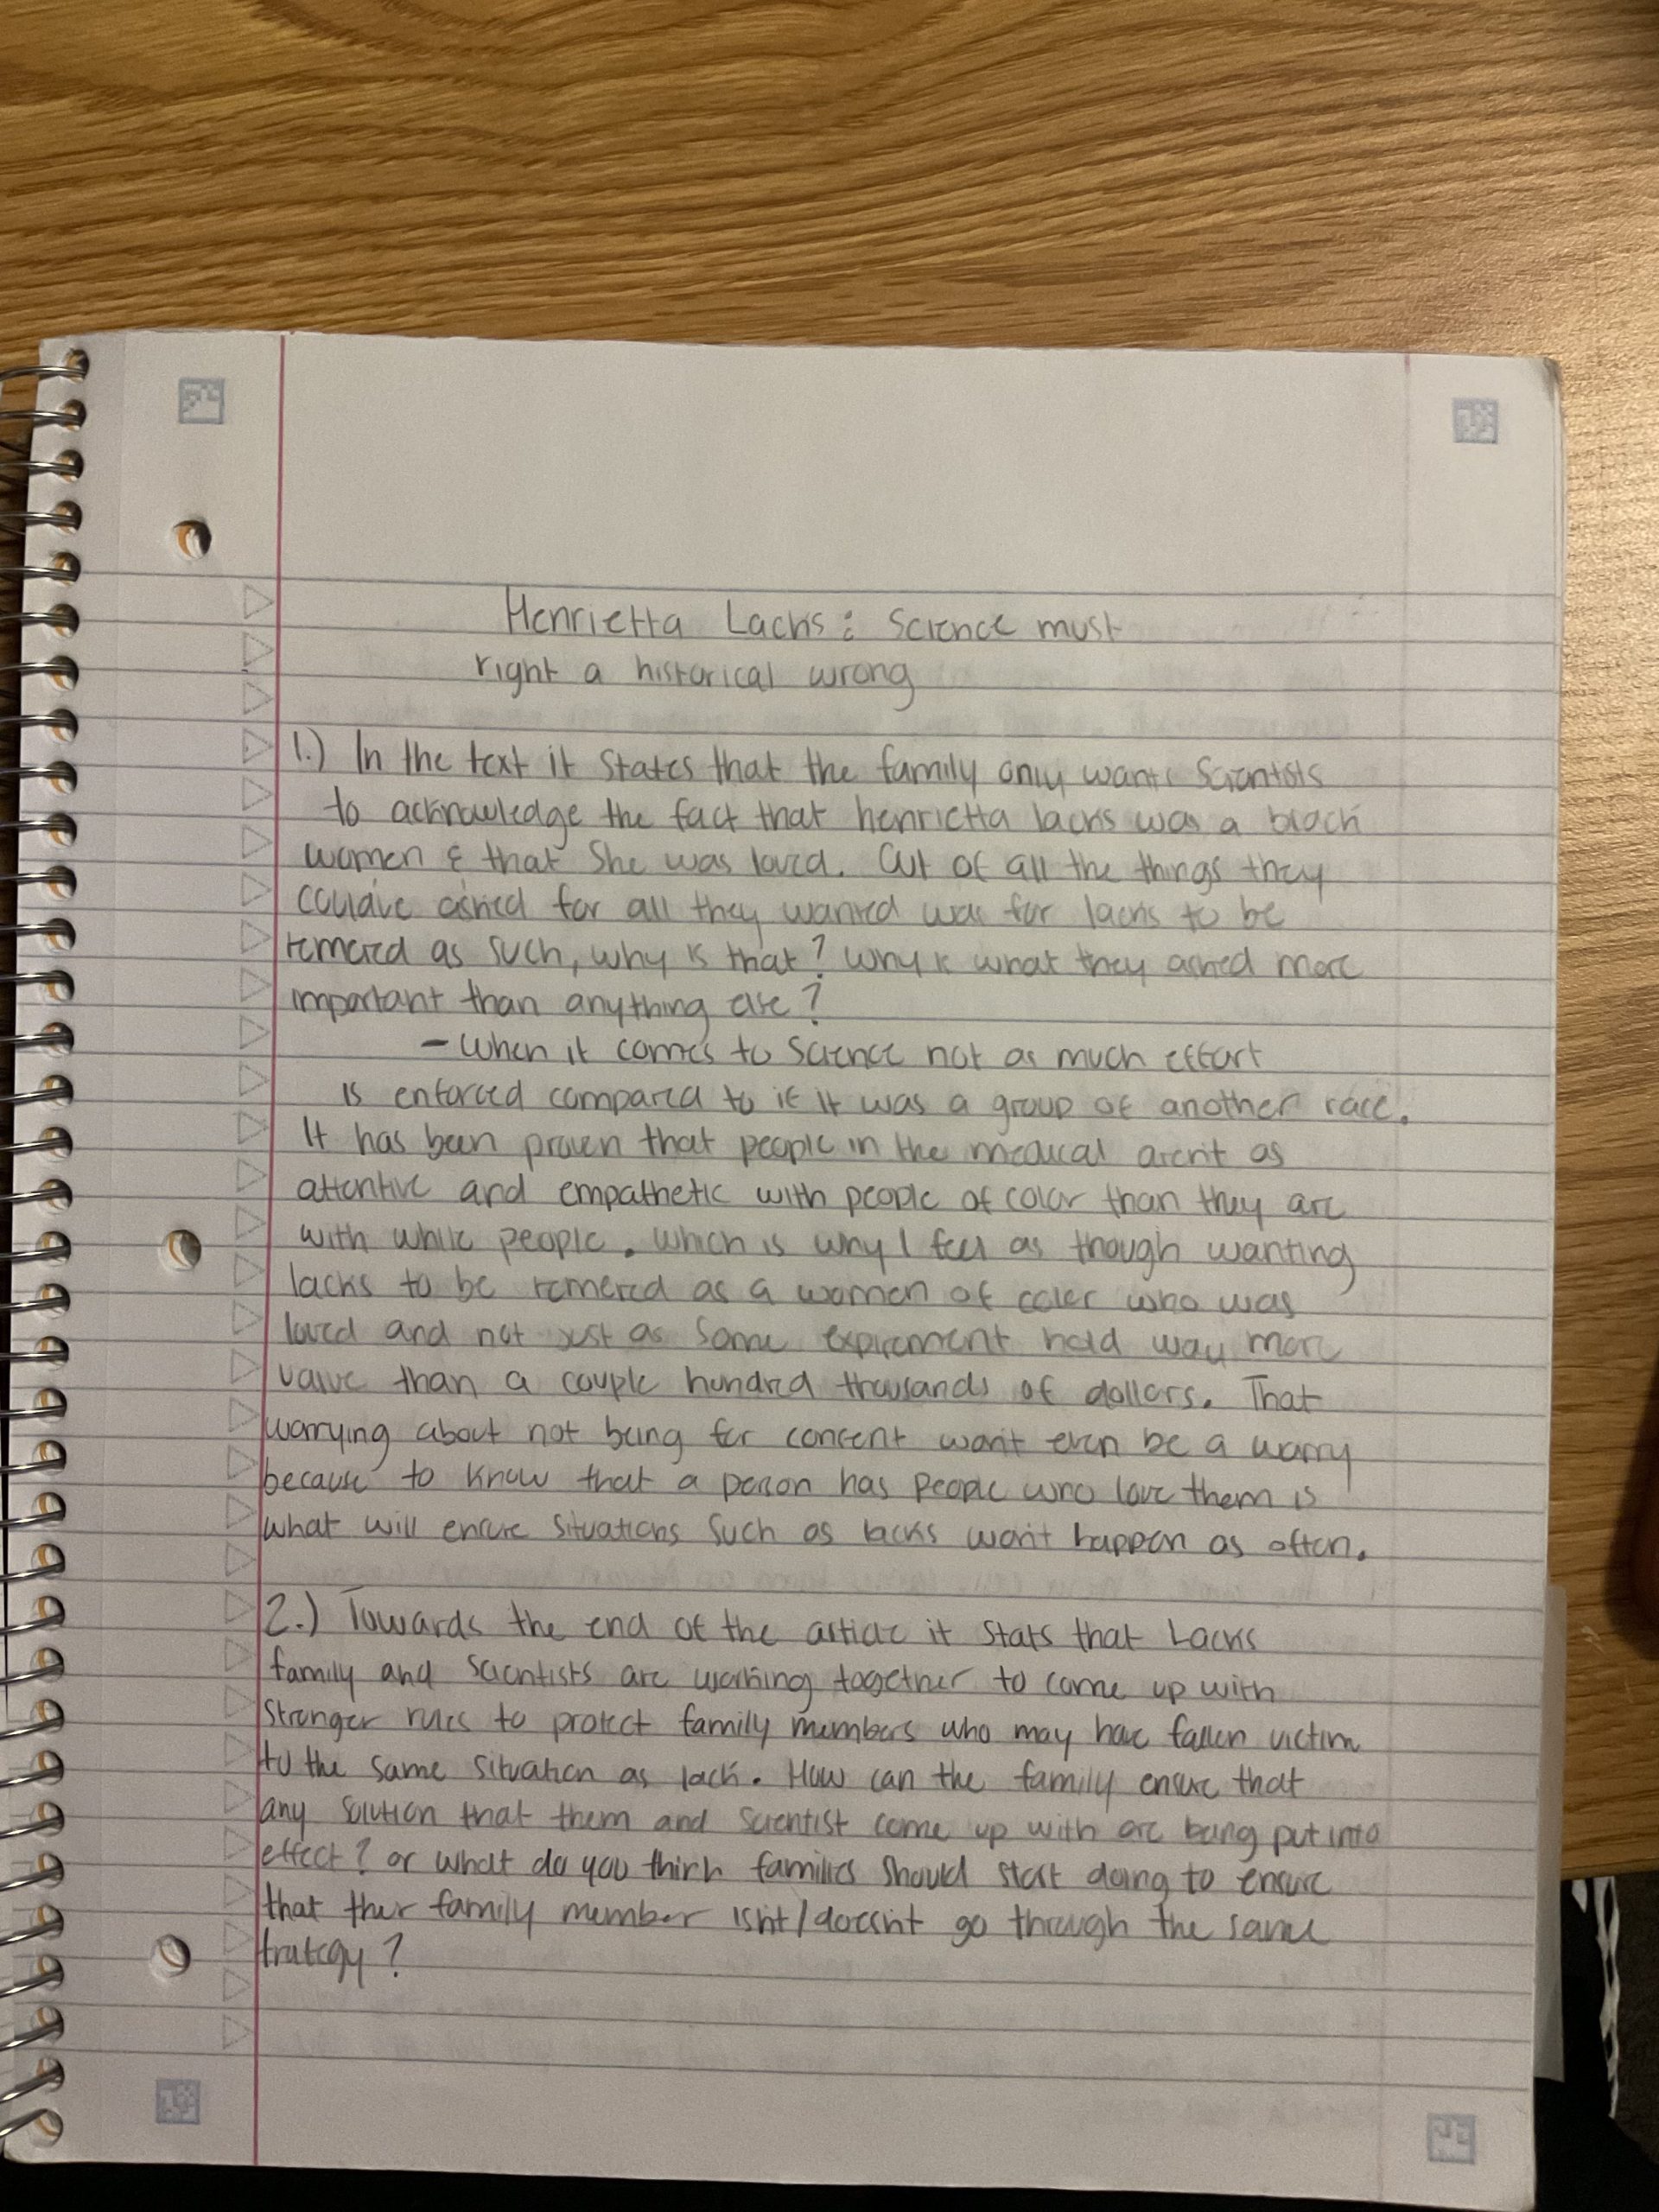 Henrietta Lacks: Science must
right a historical wrong
1.) In the text it states that the family only wants Scientists
to acknowledge the fact that henrietta lacks was a black
women & that She was loved. Out of all the things they
could've asked for all they wanted was for lacks to be
remered as such, why is that? Why is what they asked more
important than anything else?
- When it comes to Science not as much effort
is enforced compared to if it was a group of another race.
It has been proven that people in the medical aren't as
attentive and empathetic with people of color than they are
with white people. Which is why I feel as though wanting
lacks to be remered as a women of color who was
loved and not just as some expirement hold way more
value than a couple hundred thousands of dollars. That
worrying about not being for consent won't even be a worry
because to know that a person has people who love them is
what will ensure situations such as lacks won't happen as often.
2.) Towards the end of the article it stats that Lacks
family and scientists are working together to come up with
stronger rules to protect family members who may have fallen victim
to the same situation as lack. How can the family ensure that
any solution that them and scientist come up with are being put into
effect? or what do you think families should start doing to ensure
that ther family member isn't/doesn't go through the same
trategy?